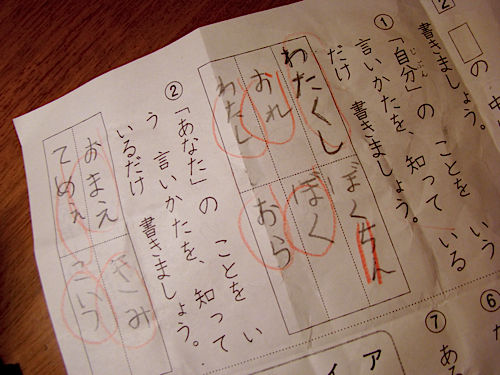 2
の中
書きましょう。
① 「自分」のことをいう
じぶん
言いかたを、知っている
だけ 書きましょう。
わたくし
ぼくちん
おれ
ぼく
わたし
おら
② 「あなた」のことをい
う 言いかたを、知って
いるだけ 書きましょう。
おまえ
きみ
てめえ
こいつ
⑥
⑦
ある
ア
イ